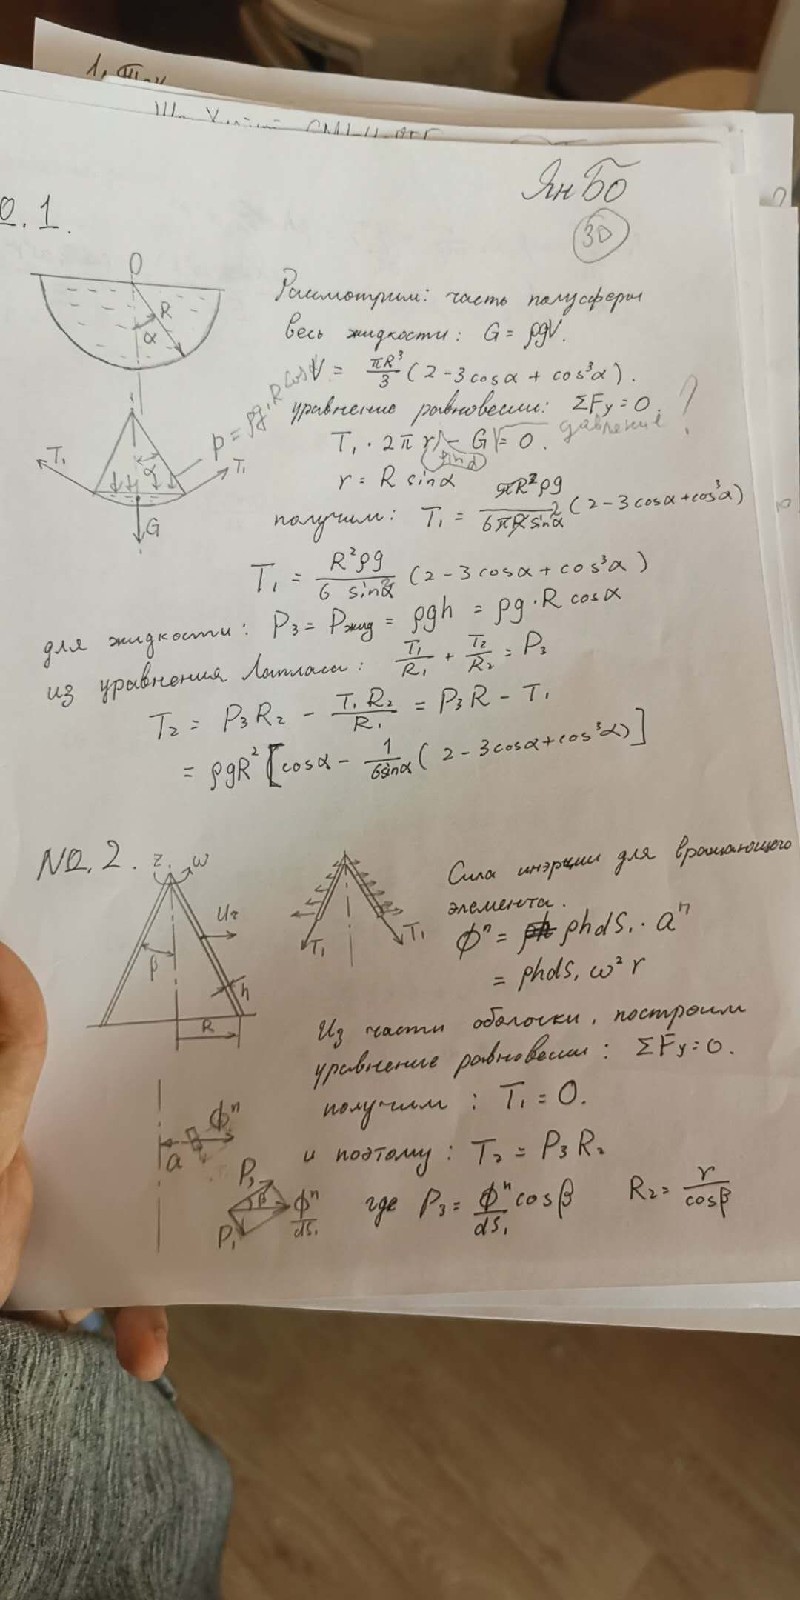 ЯнБо
30
№.1.
Рассмотрим: часть полусферы
весь жидкости: G = ρgV.
V = πR³/3 (2-3cosα + cos³α).
уравнение равновесии: ΣFy = 0.
T₁ · 2πr - G = 0. давление ?
sinα
r = R sinα
получим: T₁ = πR²ρg / 6πR sin²α (2-3cosα+cos³α)
T₁ = R²ρg / 6 sin²α (2-3cosα+cos³α)
для жидкости: P₃ = Pжид = ρgh = ρg·R cosα
из уравнения Лапласа: T₁/R₁ + T₂/R₂ = P₃
T₂ = P₃R₂ - T₁R₂/R₁ = P₃R - T₁
= ρgR² [cosα - 1/6sinα (2-3cosα+cos³α)]
O
R
α
p = ρg·R cosα
T₁
T₁
G
№.2.
z
ω
β
h
R
T₁
T₁
Сила инэрции для вращающого
элемента.
Φⁿ = ρhdS₁ · aⁿ
= ρhdS₁ ω²r
Из части оболочки, построим
уравнение равновесии: ΣFy=0.
получим: T₁ = 0.
и поэтому: T₂ = P₃R₂
где P₃ = Φⁿ/dS₁ cosβ R₂ = r/cosβ
Φⁿ
a
P₃
β
Φⁿ/dS₁
P₁